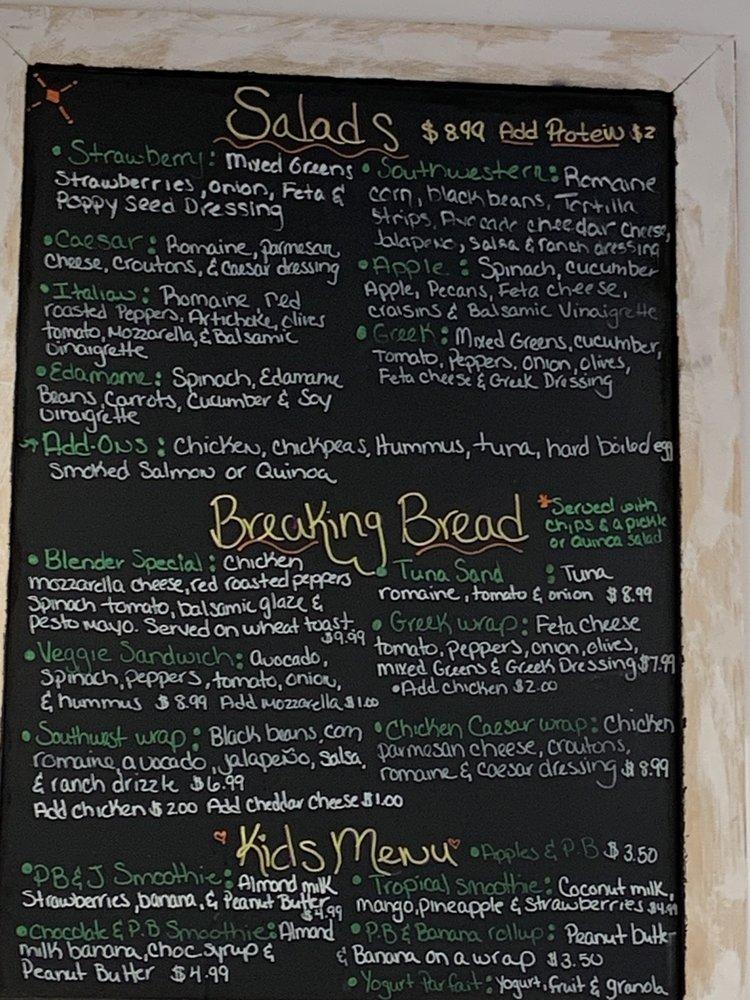 Salads $8.99 Add Protein $2
• Strawberry: Mixed Greens
Strawberries, onion, Feta &
Poppy Seed Dressing
• Caesar: Romaine, parmesan
cheese, croutons, & Caesar dressing
• Italian: Romaine, red
roasted Peppers, Artichoke, olives
tomato, Mozzarella, & Balsamic
vinaigrette
• Edamame: Spinach, Edamame
Beans, Carrots, Cucumber & Soy
vinaigrette
• Southwestern: Romaine
corn, black beans, Tortilla
Strips, Avocado cheedar cheese,
Jalapeno, salsa & ranch dressing
• Apple: Spinach, cucumber
Apple, Pecans, Feta cheese,
craisins & Balsamic Vinaigrette
• Greek: Mixed Greens, cucumber,
Tomato, Peppers, onion, olives,
Feta cheese & Greek Dressing
→ Add-Ons: Chicken, chickpeas, Hummus, tuna, hard boiled egg
Smoked Salmon or Quinoa
Breaking Bread
*Served with
chips & a pickle
or quinoa salad
• Blender Special: Chicken
mozzarella cheese, red roasted peppers
Spinach tomato, balsamic glaze &
pesto mayo. Served on wheat toast
$9.99
• Veggie Sandwich: avocado,
Spinach, peppers, tomato, onion,
& hummus $8.99 Add mozzarella $1.00
• Southwest wrap: Black beans, corn
romaine, avocado, jalapeño, salsa,
& ranch drizzle $6.99
Add chicken $2.00 Add cheddar cheese $1.00
• Tuna Sand: Tuna
romaine, tomato & onion $8.99
• Greek wrap: Feta cheese
tomato, peppers, onion, olives,
mixed Greens & Greek Dressing $7.99
• Add chicken $2.00
• Chicken Caesar wrap: Chicken
parmesan cheese, croutons,
romaine & caesar dressing $8.99
Kids Menu
• PB & J Smoothie: Almond milk
Strawberries, banana, & Peanut Butter
$4.99
• Chocolate & P.B Smoothie: Almond
milk banana, choc syrup &
Peanut Butter $4.99
• Apples & P.B $3.50
• Tropical smoothie: Coconut milk,
mango, pineapple & strawberries $4.99
• P.B & Banana rollup: Peanut butter
& Banana on a wrap $3.50
• Yogurt Parfait: Yogurt, fruit & granola